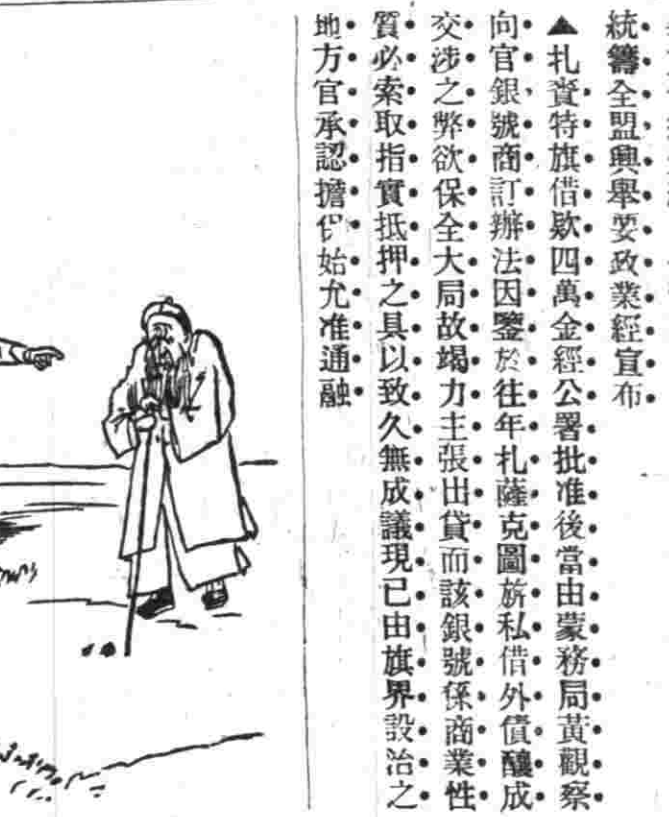 統籌全盟興舉要政業經宣布
▲扎賚特旗借欵四萬金經公署批准後當由蒙務局黃觀察
向官銀號商訂辦法因鑒於往年扎薩克圖旂私借外債釀成
交涉之弊欲保全大局故竭力主張出貸而該銀號係商業性
質必索取指實抵押之具以致久無成議現已由旗界設治之
地方官承認擔保始允准通融